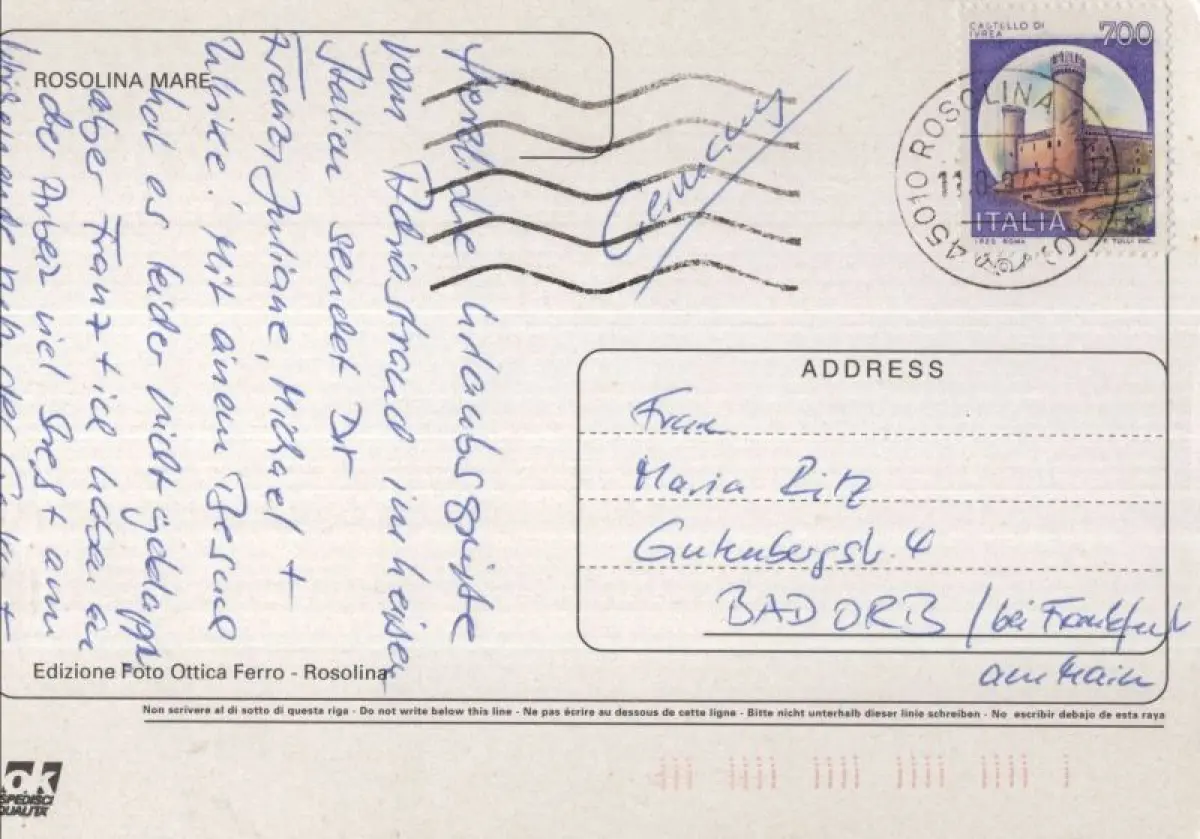 ROSOLINA MARE
Herzliche Urlaubsgrüße
vom Adriastrand im heißen
Italien sendet Dir
Franz, Juliane, Michael +
Ulrike. Mit einem Besuch
hat es leider nicht geklappt
aber Franz + ich haben an
der Arber viel
Edizione Foto Ottica Ferro - Rosolina
Germany
CASTELLO DI
IVREA
700
ITALIA
I.P.Z.S. ROMA
E. TULLI INC.
45010 ROSOLINA
ADDRESS
Frau
Maria Ritz
Gutenbergstr. 4
BAD ORB / bei Frankfurt
am Main
Non scrivere al di sotto di questa riga - Do not write below this line - Ne pas écrire au dessous de cette ligne - Bitte nicht unterhalb dieser linie schreiben - No escribir debajo de esta raya
ok
SPEDISCI
QUALITÀ